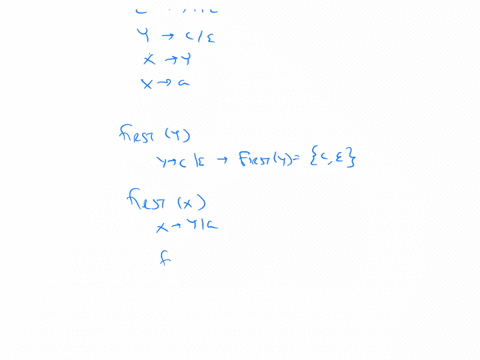 Y → c/ε
X → Y
X → a
First (Y)
Y→c|ε → First(Y)= {c, ε}
First (X)
X → Y|a
f